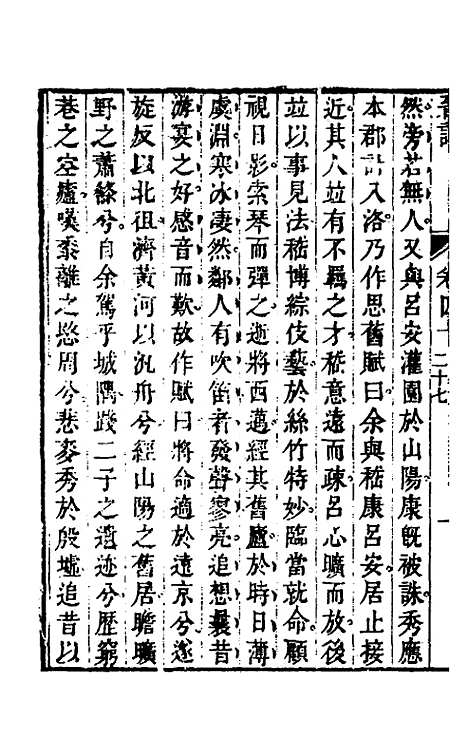 卷四十 二十七
然旁若無人又與呂安灌園於山陽康旣被誅秀應
本郡計入洛乃作思舊賦曰余與嵇康呂安居止接
近其人竝有不羈之才嵇意遠而疎呂心曠而放後
竝以事見法嵇博綜伎藝於絲竹特妙臨當就命顧
視日影索琴而彈之逝將西邁經其舊廬於時日薄
虞淵寒冰淒然鄰人有吹笛者發聲寥亮追想曩昔
游宴之好感音而歎故作賦曰將命適於遠京兮遂
旋反以北徂濟黃河以汎舟兮經山陽之舊居瞻曠
野之蕭條兮自余駕乎城隅踐二子之遺迹兮歷窮
巷之空廬嘆黍離之愍周兮悲麥秀於殷墟追昔以